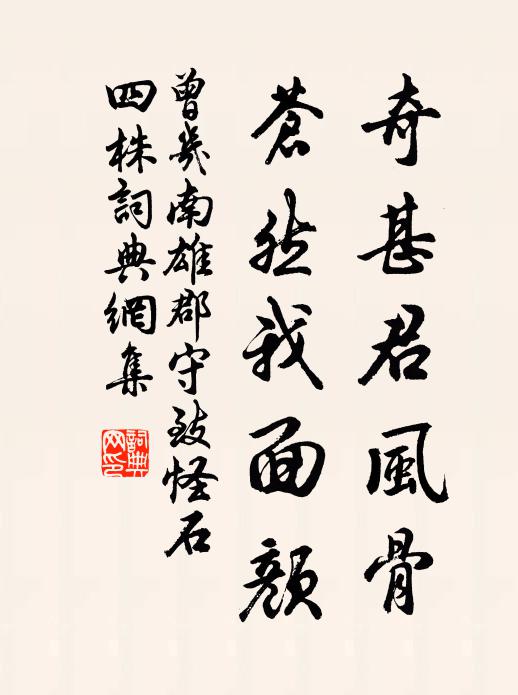 奇甚君風骨
蒼然我面顏
曾幾南雄郡守致怪石
四株詞典網集
詞典網印